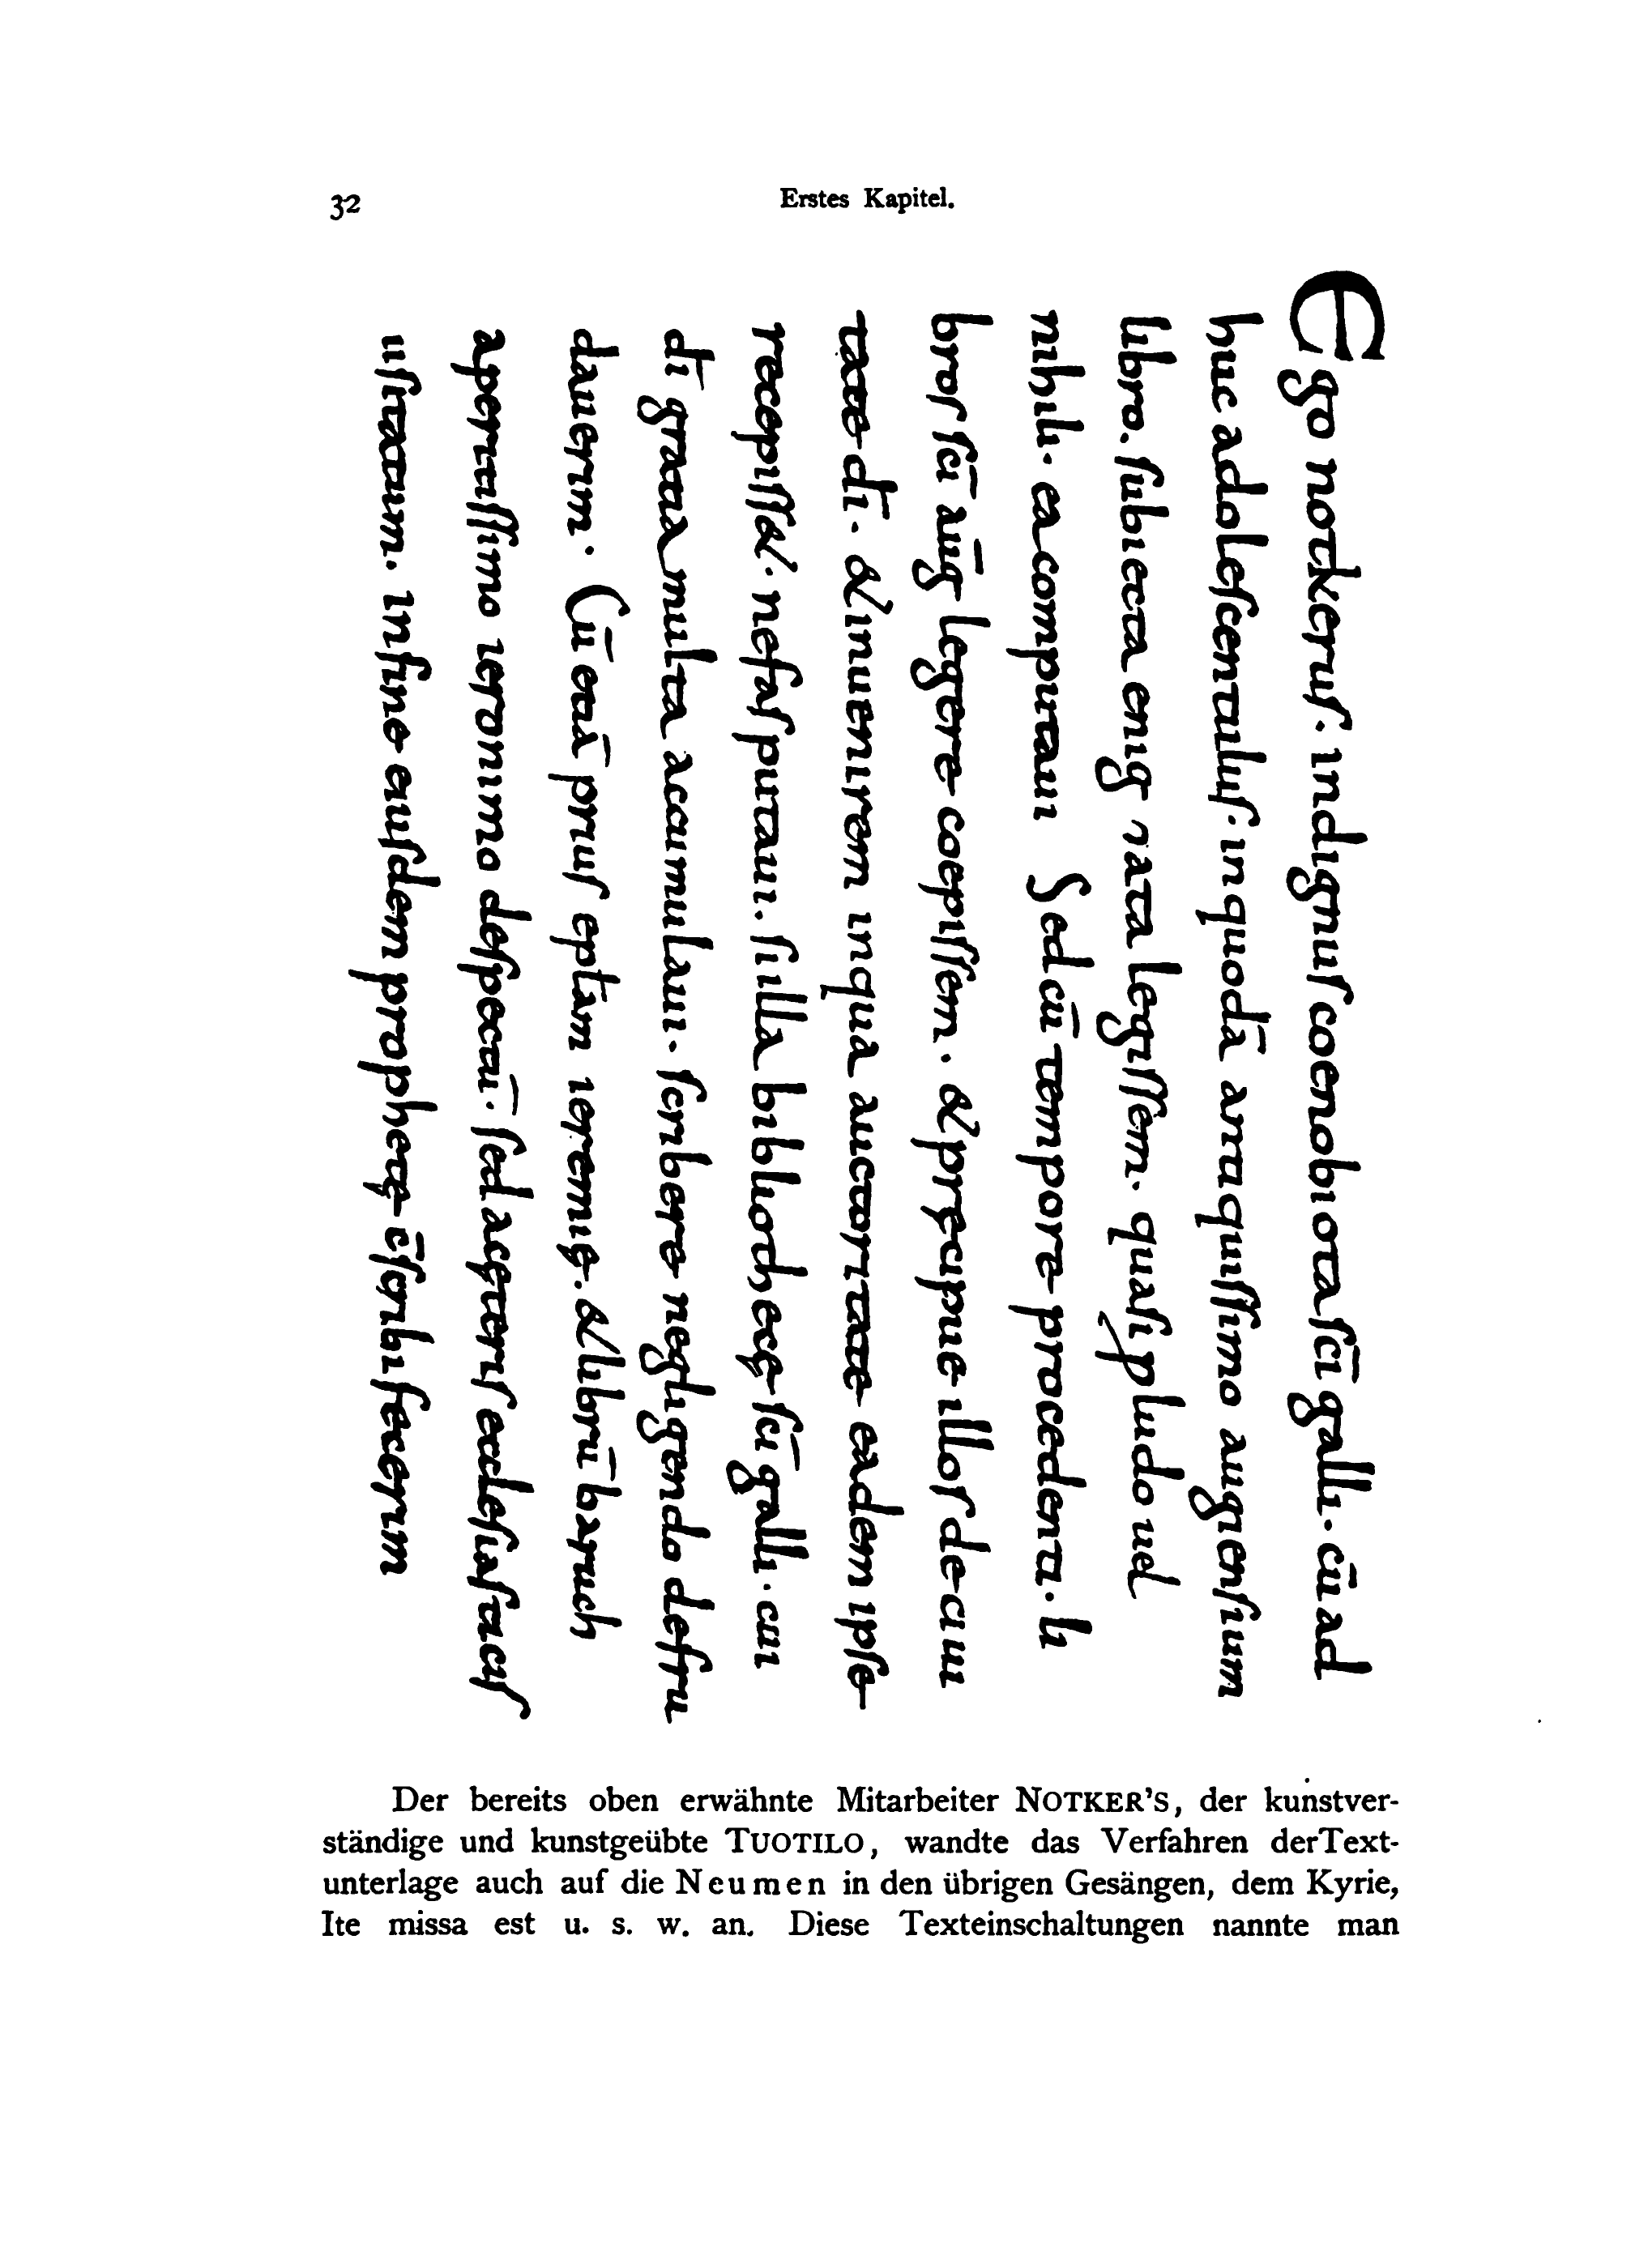 32
Erstes Kapitel.
Ego notkeruſ. indignuſ coenobiota ſc̄i galli. cū ad
huc adoleſcentuluſ. in quodā antiquiſſimo augienſium
libro. ſubiecta enig mata legiſſem. quaſi p ludo uel
nihili. ea computaui Sed cū tempore procedenti. li
broſ ſc̄i aūg legere coepiſſem. & pręcipue illoſ de ciui
tate dī. & inuenirem in qua auctoritate eadem ipſe
recepiſſet. nefaſ putaui. ſi illa bibliothecę ſc̄i galli. cui
dī gratia multa accumulaui. ſcribere neglegendo defru
dauerim. Cū etiā priuſ eptām ieremię. & librū baruch
apertiſſimo ieronimo deſpectū. ſed a cęteriſ eccleſiaſticiſ
uſitatum. in fine eiuſdem prophetę c̄ſcribi fecerim
Der bereits oben erwähnte Mitarbeiter NOTKER'S, der kunstver-
ständige und kunstgeübte TUOTILO, wandte das Verfahren derText-
unterlage auch auf die Neumen in den übrigen Gesängen, dem Kyrie,
Ite missa est u. s. w. an. Diese Texteinschaltungen nannte man